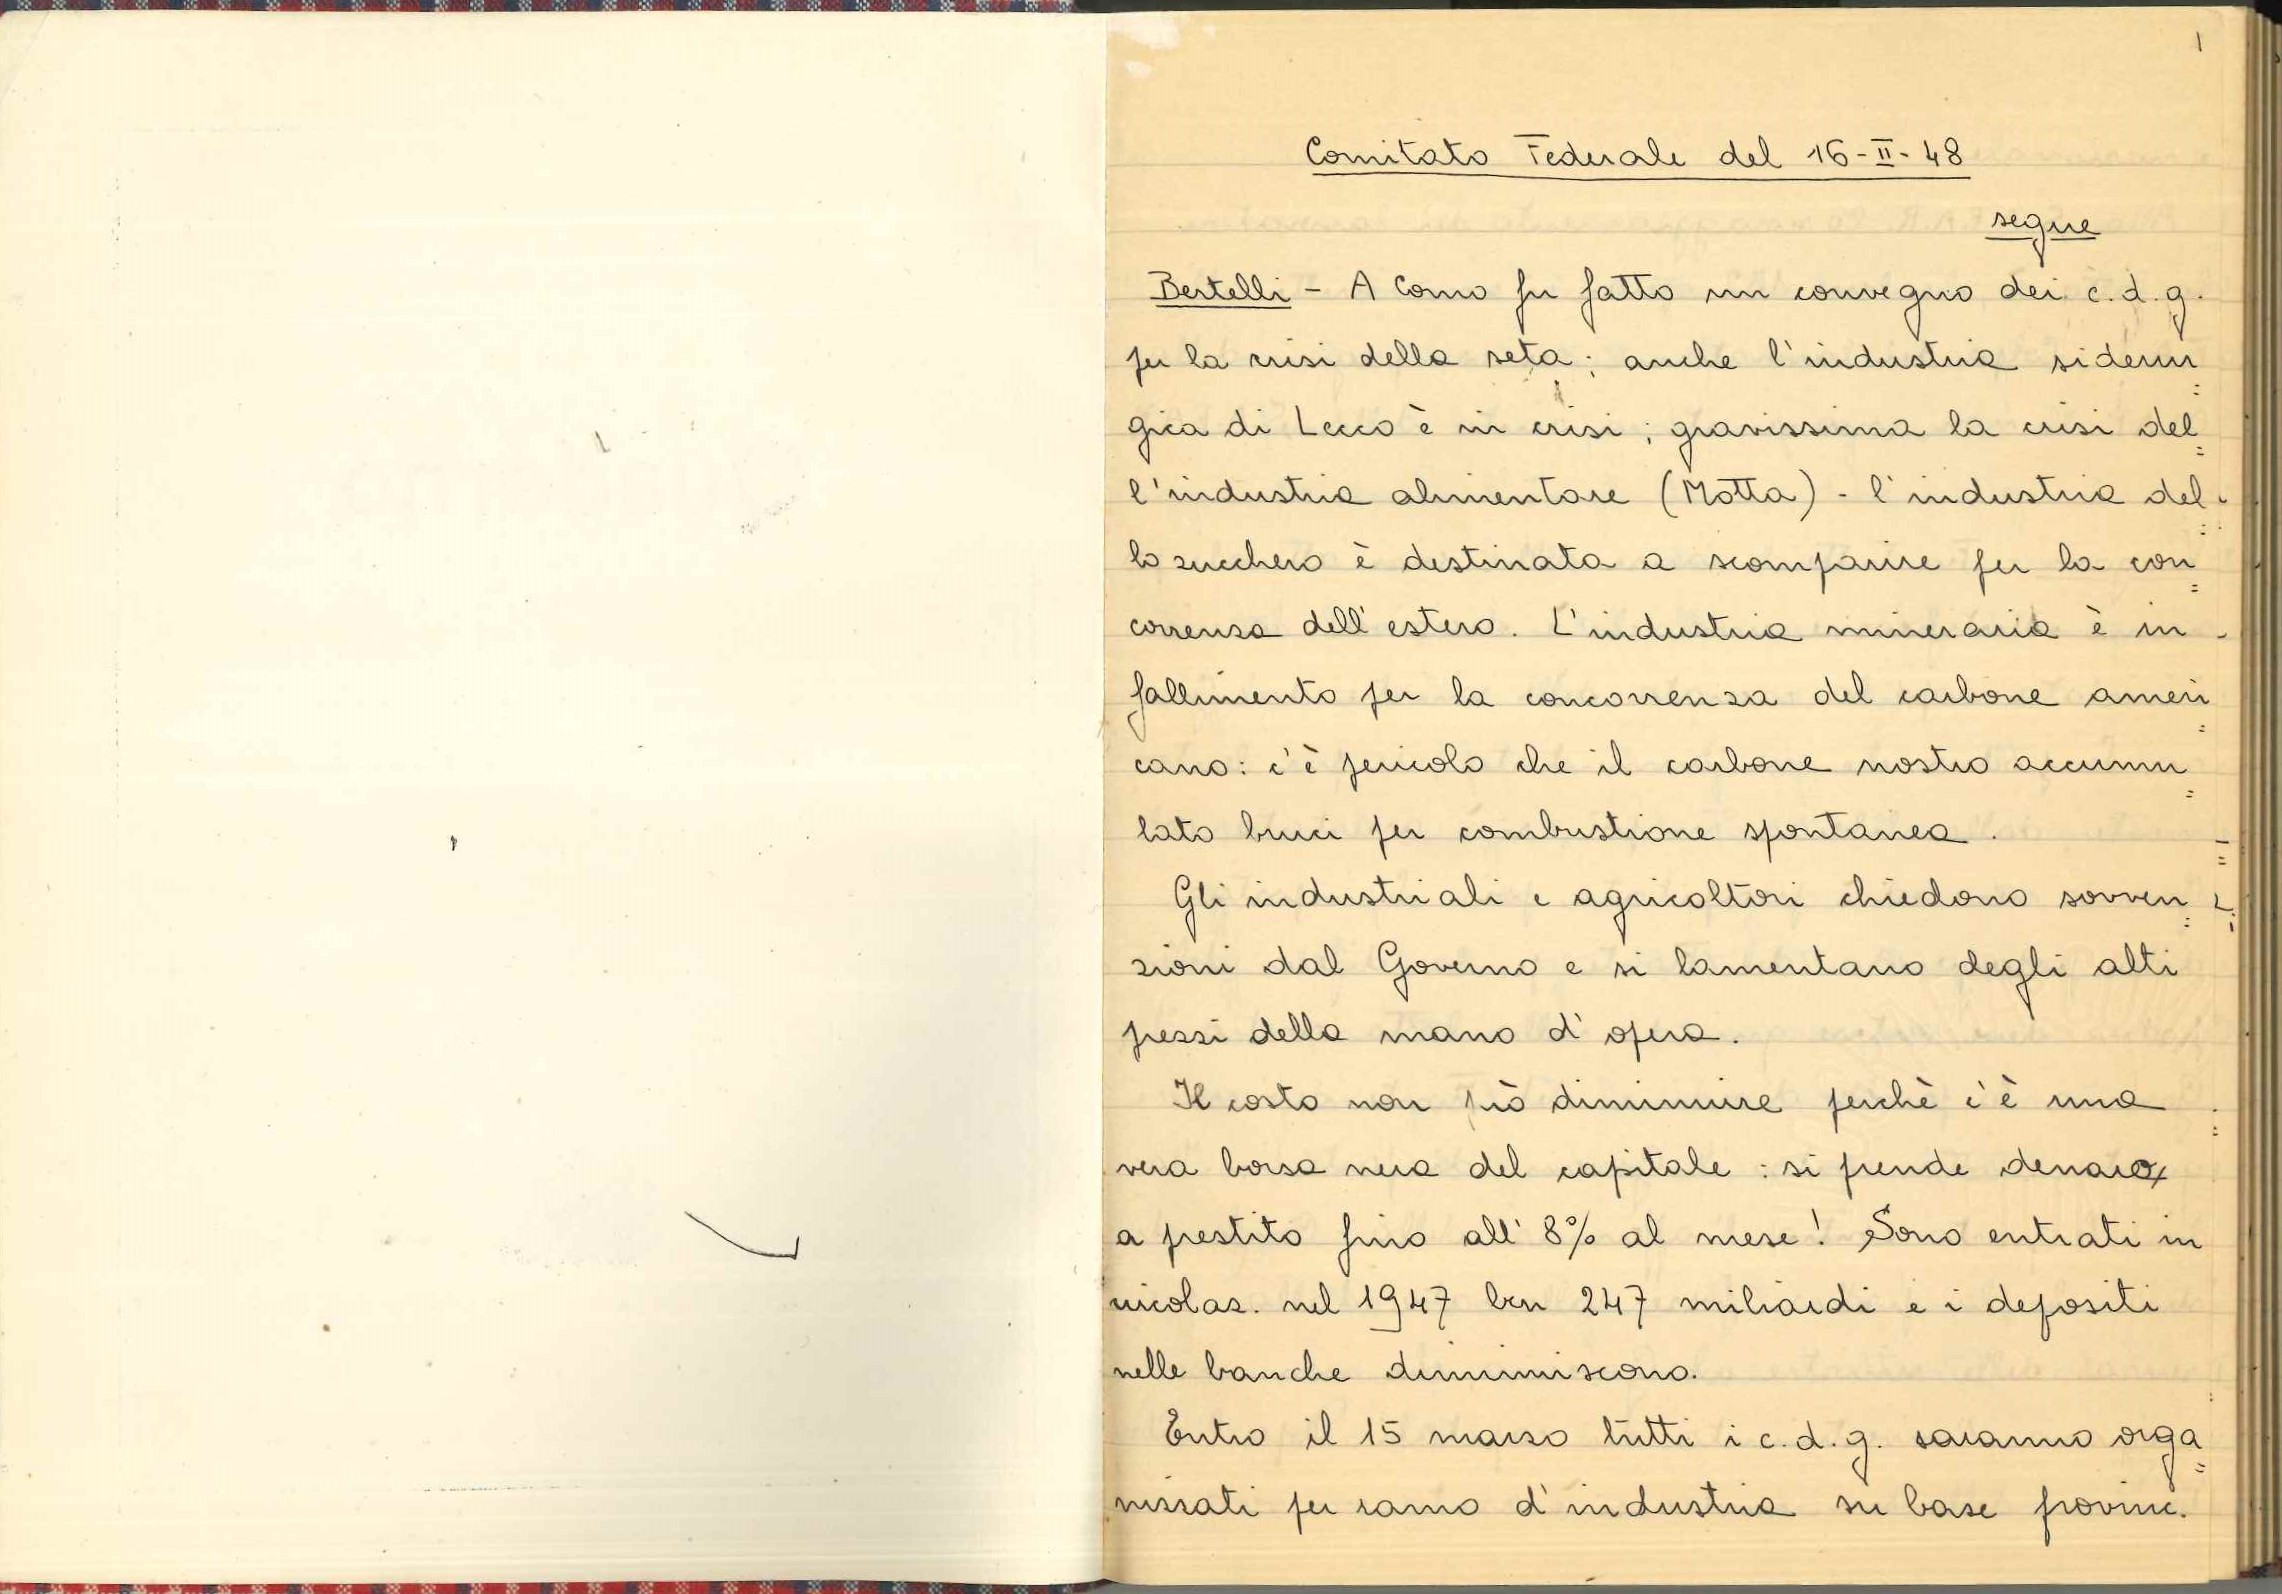 1
Comitato Federale del 16-II-48
segue
Bertelli - A Como fu fatto un convegno dei c.d.g.
per la crisi della seta; anche l'industria siderur=
gica di Lecco è in crisi; gravissima la crisi del=
l'industria alimentare (Motta) - l'industria del=
lo zucchero è destinata a scomparire per la con=
correnza dell'estero. L'industria mineraria è in
fallimento per la concorrenza del carbone ameri=
cano: c'è pericolo che il carbone nostro accumu=
lato bruci per combustione spontanea.
Gli industriali e agricoltori chiedono sovven=
zioni dal Governo e si lamentano degli alti
prezzi della mano d'opera.
Il costo non può diminuire perchè c'è una
vera borsa nera del capitale: si prende denaro
a prestito fino all'8% al mese! Sono entrati in
circolaz. nel 1947 ben 247 miliardi e i depositi
nelle banche diminuiscono.
Entro il 15 marzo tutti i c.d.g. saranno orga=
nizzati per ramo d'industria su base provinc.